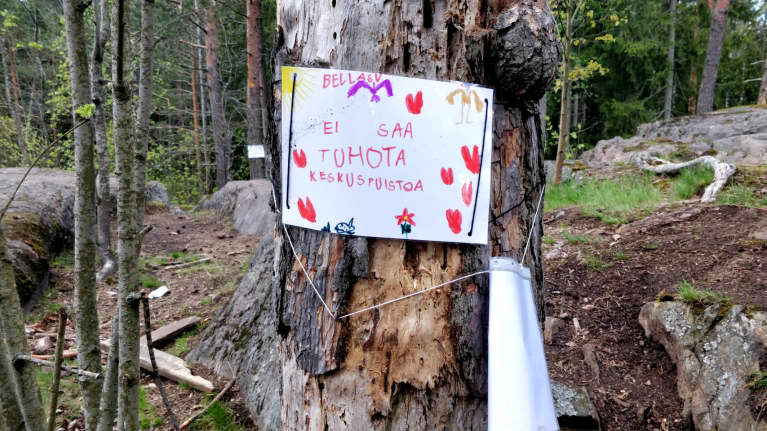 BELLA 6V
EI SAA
TUHOTA
KESKUSPUISTOA